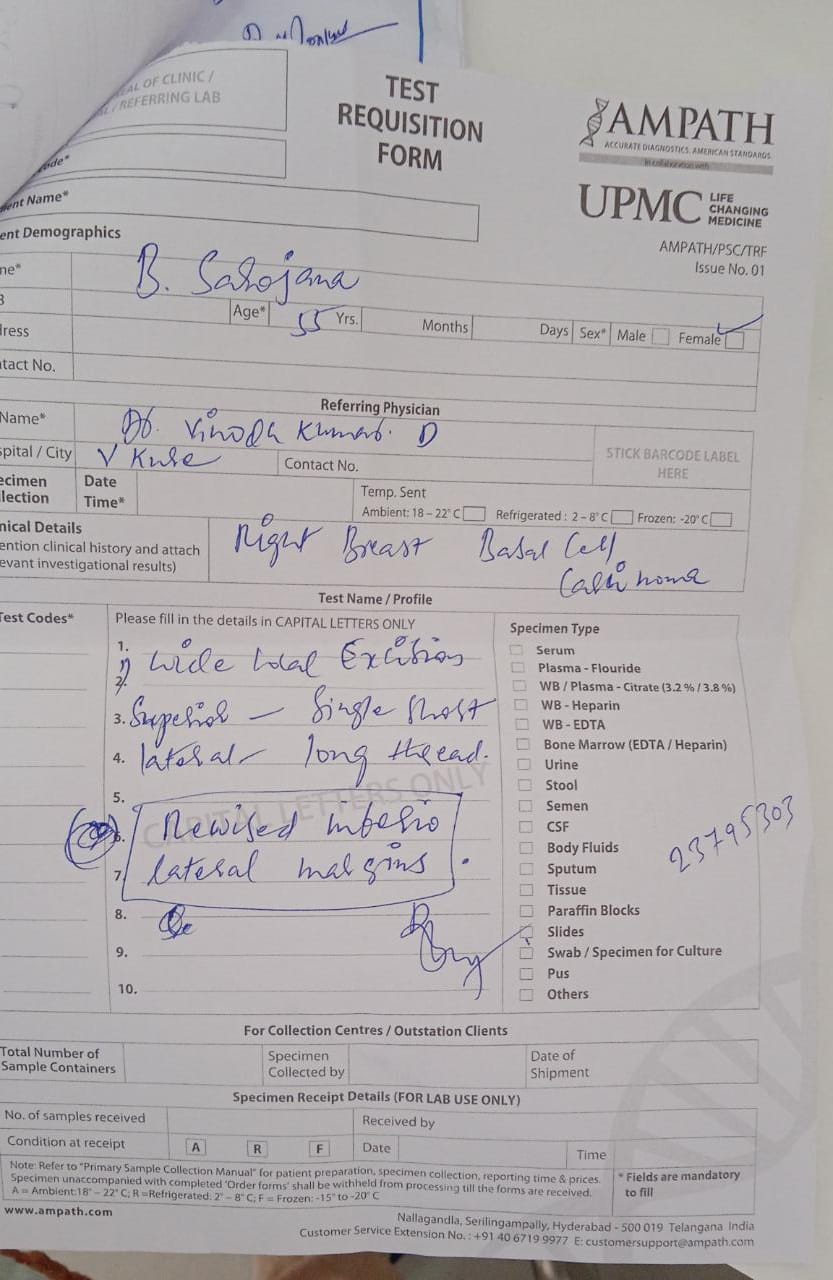 AL OF CLINIC /
/ REFERRING LAB
TEST
REQUISITION
FORM
AMPATH
ACCURATE DIAGNOSTICS. AMERICAN STANDARDS
In collaboration with
UPMC LIFE CHANGING MEDICINE
AMPATH/PSC/TRF
Issue No. 01
ode*
ent Name*
ent Demographics
me*
B. Sarojana
Age* 55 Yrs. Months Days Sex* Male Female
ress
tact No.
Referring Physician
Name* Dr. Vinodh Kumar. D
spital / City V Kure Contact No.
STICK BARCODE LABEL
HERE
ecimen
llection
Date
Time*
Temp. Sent
Ambient: 18 – 22°C Refrigerated : 2 – 8°C Frozen: -20°C
nical Details
ention clinical history and attach
evant investigational results)
Right Breast Basal Cell
Carcinoma
Test Name / Profile
Test Codes* Please fill in the details in CAPITAL LETTERS ONLY
1.
1) Wide Local Excision
2.
3. Superior – Single Short
4. lateral – long thread.
5.
CAPITAL LETTERS ONLY
6. Rewised inferio
7. lateral margins.
8.
9.
10.
Specimen Type
Serum
Plasma - Flouride
WB / Plasma - Citrate (3.2 % / 3.8 %)
WB - Heparin
WB - EDTA
Bone Marrow (EDTA / Heparin)
Urine
Stool
Semen
CSF
Body Fluids
Sputum
Tissue
Paraffin Blocks
Slides
Swab / Specimen for Culture
Pus
Others
23795303
For Collection Centres / Outstation Clients
Total Number of
Sample Containers
Specimen
Collected by
Date of
Shipment
Specimen Receipt Details (FOR LAB USE ONLY)
No. of samples received Received by
Condition at receipt A R F Date Time
Note: Refer to "Primary Sample Collection Manual" for patient preparation, specimen collection, reporting time & prices.
Specimen unaccompanied with completed 'Order forms' shall be withheld from processing till the forms are received.
A = Ambient:18° – 22° C; R =Refrigerated: 2° – 8° C; F = Frozen: -15° to -20° C
* Fields are mandatory
to fill
www.ampath.com
Nallagandla, Serilingampally, Hyderabad - 500 019 Telangana India
Customer Service Extension No. : +91 40 6719 9977 E: customersupport@ampath.com